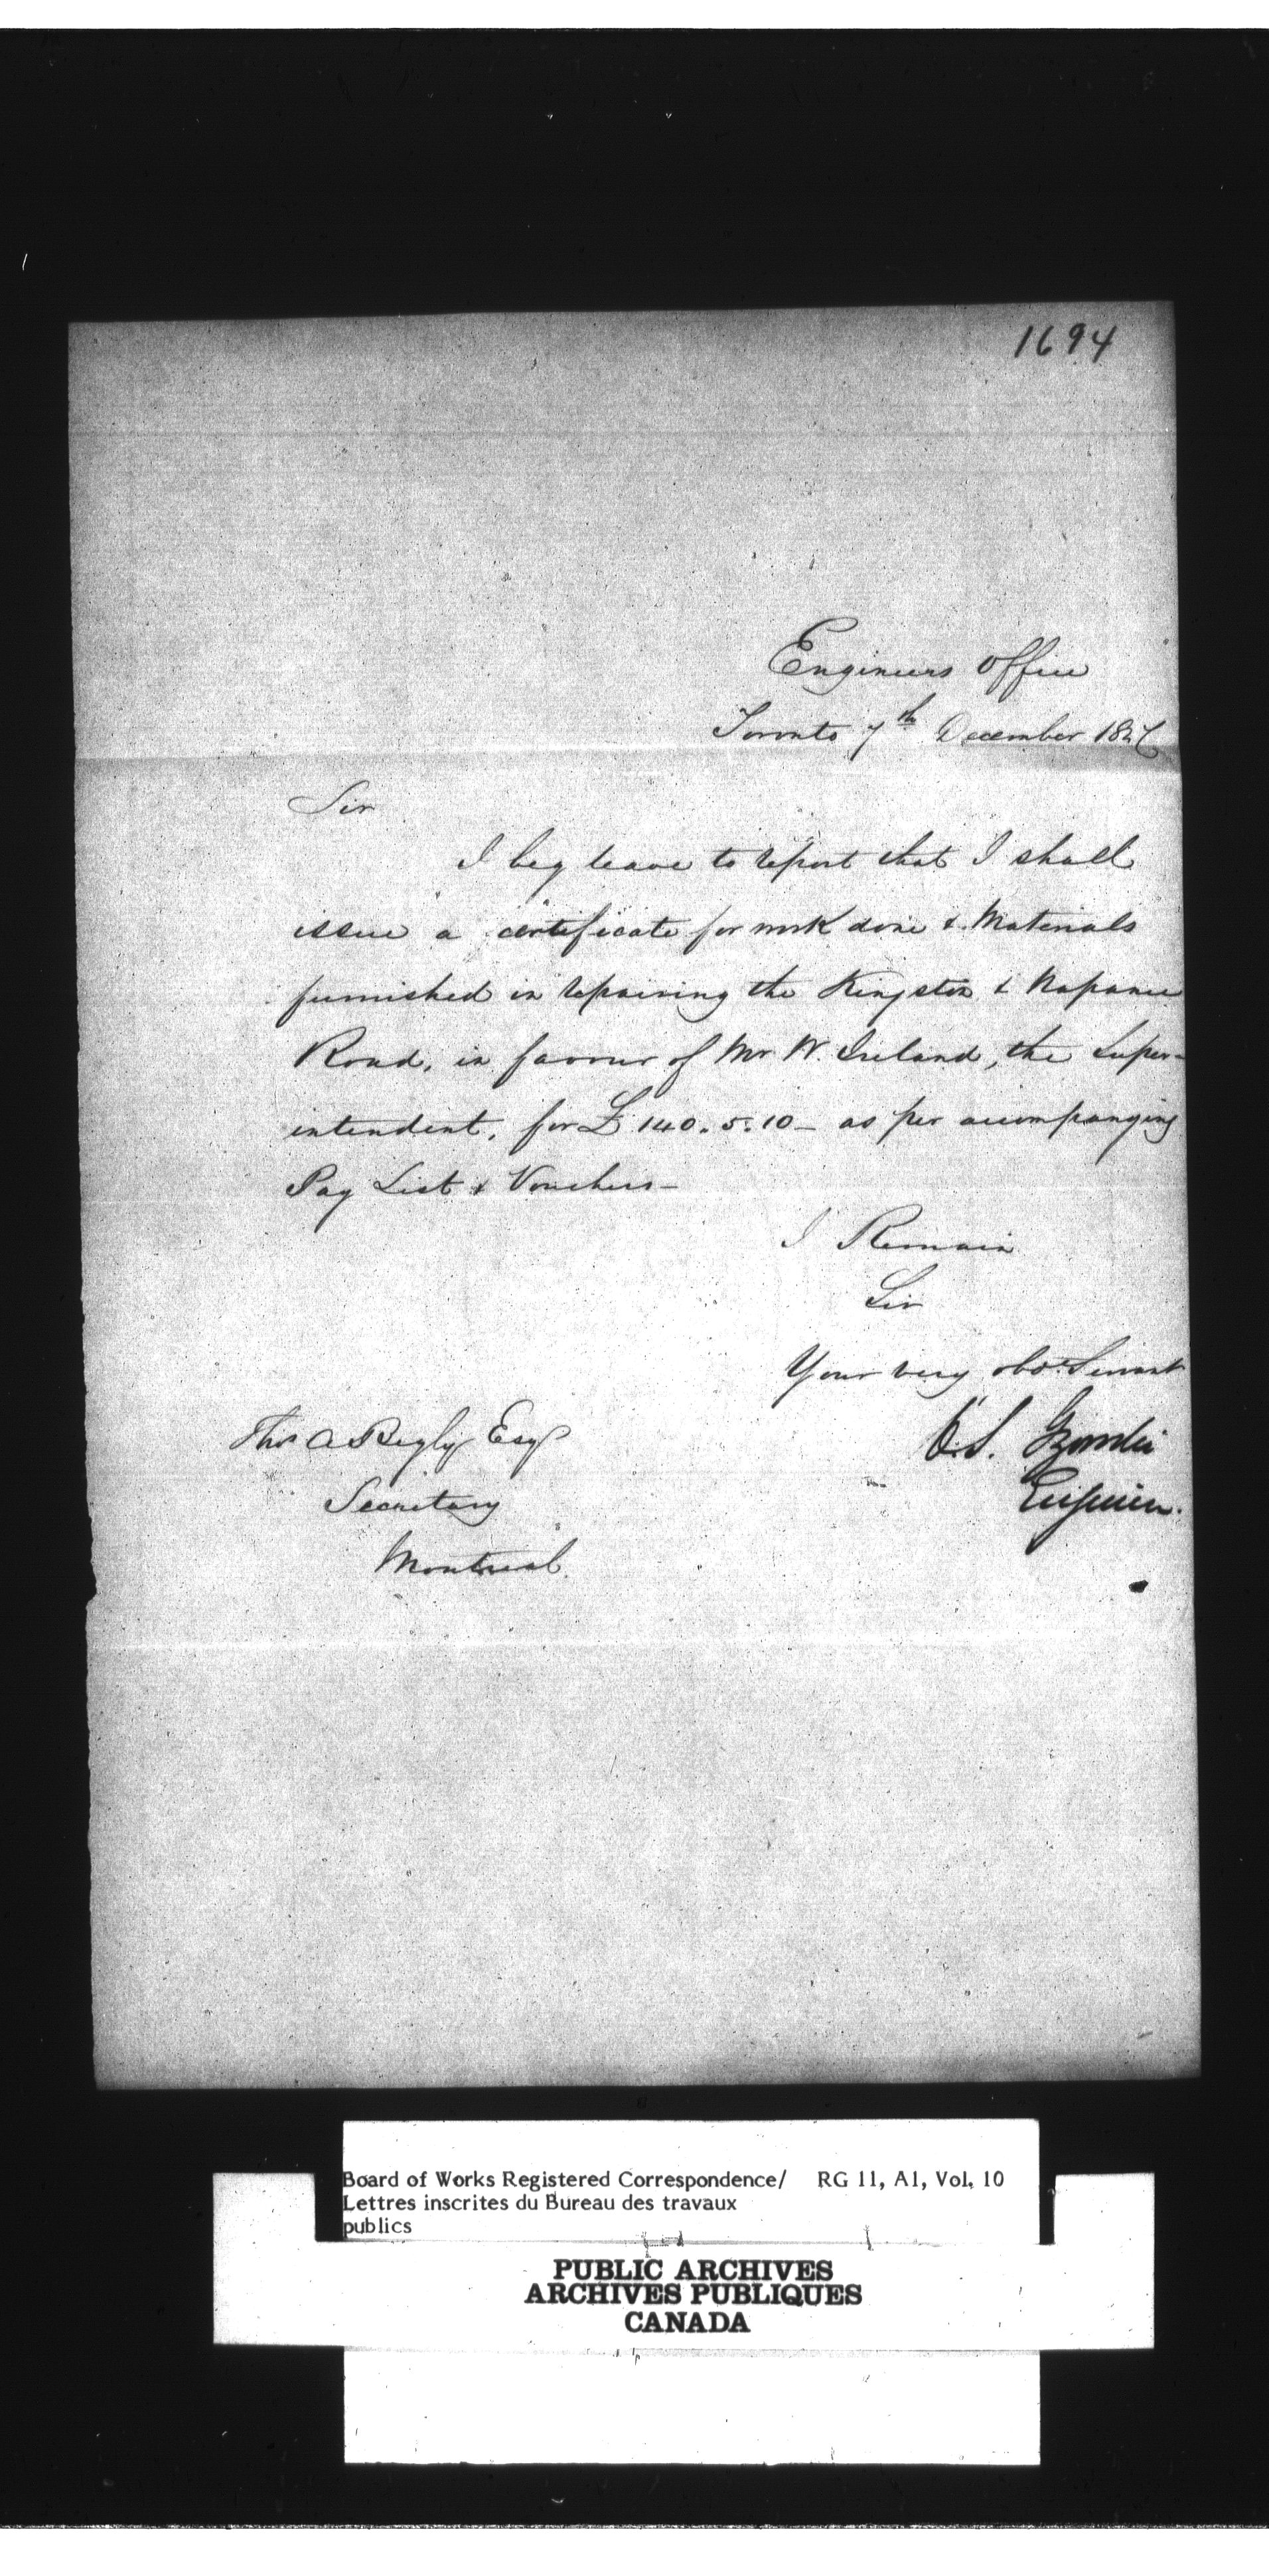 1694
Engineers Office
Toronto 7th December 1846
Sir
I beg leave to report that I shall
issue a certificate for work done & Materials
furnished in repairing the Kingston & Napanee
Road, in favour of Mr W. Ireland, the Super-
intendent, for £140.5.10 – as per accompanying
Pay List & Vouchers –
I Remain
Sir
Your very obdt Servant
C.S. Gzowski
Engineer.
Thos A Begly Esqr
Secretary
Montreal.
Board of Works Registered Correspondence/ RG 11, A1, Vol. 10
Lettres inscrites du Bureau des travaux
publics
PUBLIC ARCHIVES
ARCHIVES PUBLIQUES
CANADA